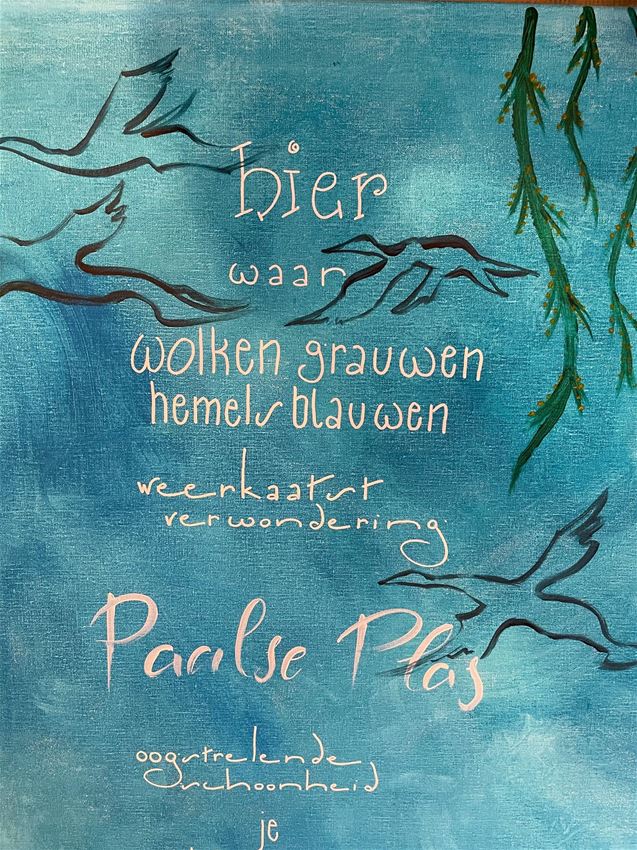 hier
waar
wolken grauwen
hemels blauwen
weerkaatst
verwondering
Parilse Plas
oogstrelende
schoonheid
je